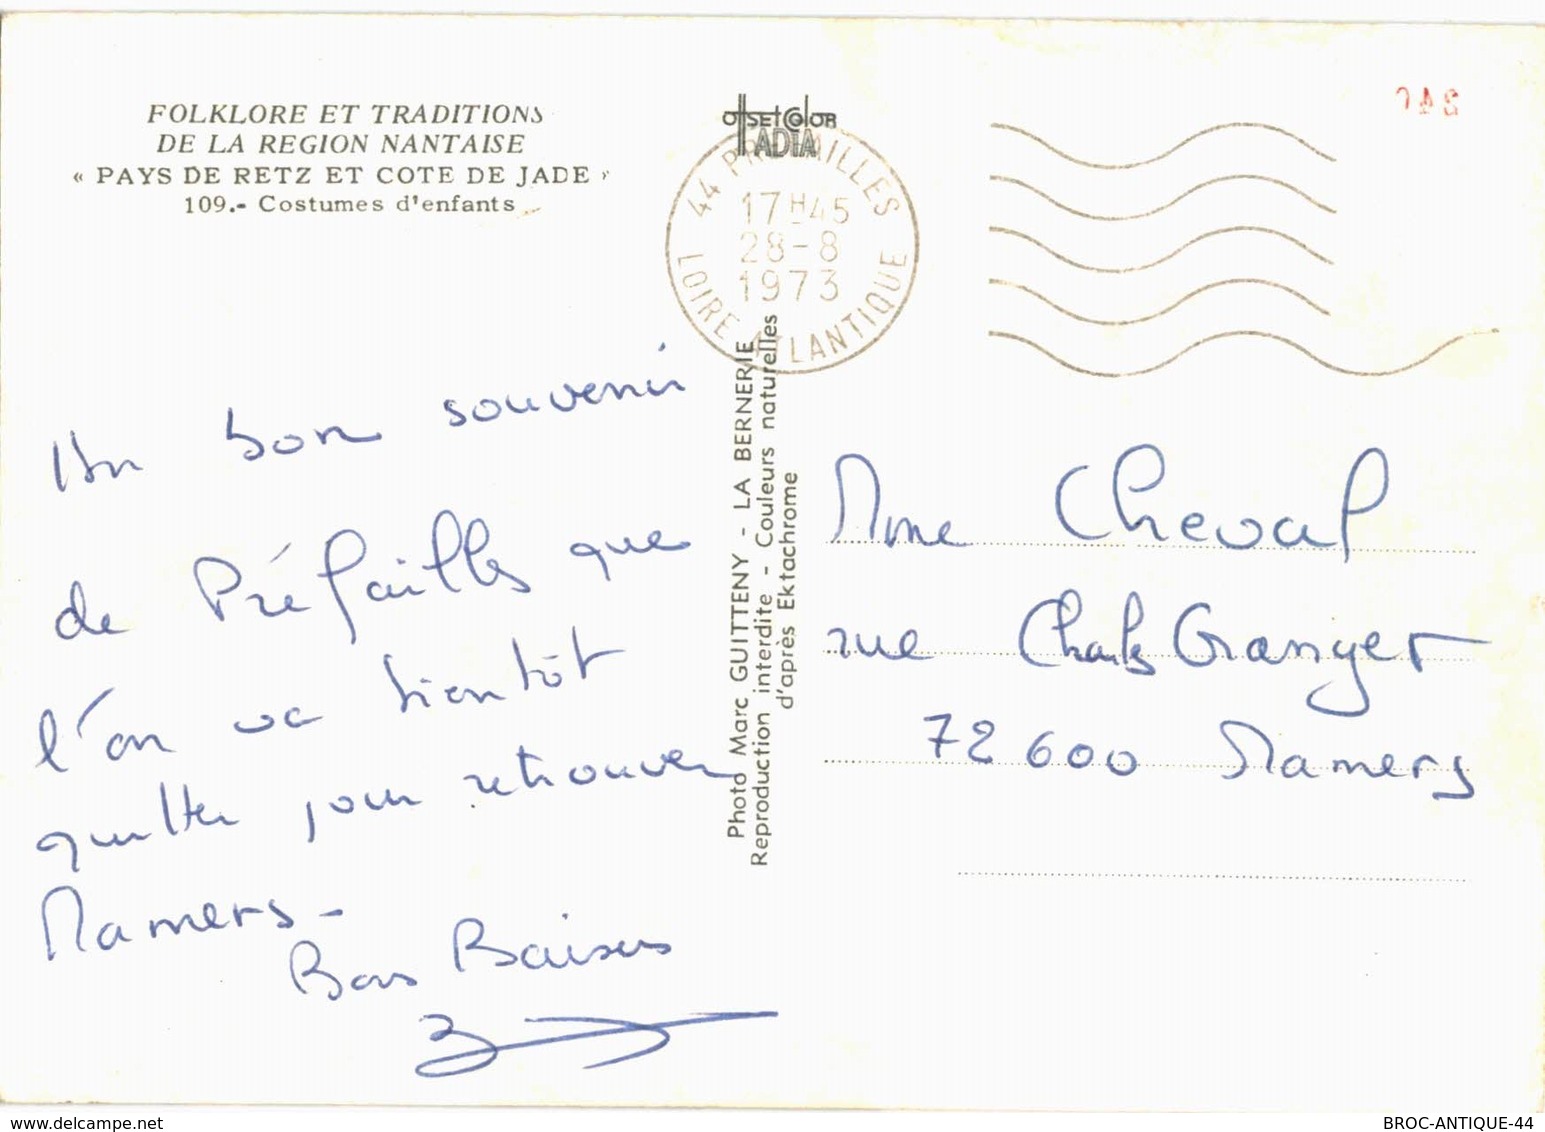 FOLKLORE ET TRADITIONS
DE LA REGION NANTAISE
« PAYS DE RETZ ET COTE DE JADE »
109.- Costumes d'enfants
OffSET ColOR
IADIA
44 PREFAILLES
17H45
28-8
1973
LOIRE ATLANTIQUE
Un bon souvenir
de Préfailles que
l'on va bientôt
quitter pour retrouver
Mamers-
Bons Baisers
Photo Marc GUITTENY - LA BERNERIE
Reproduction interdite - Couleurs naturelles
d'après Ektachrome
Mme Cheval
rue Charles Granger
72600 Mamers
delcampe.net
BROC-ANTIQUE-44